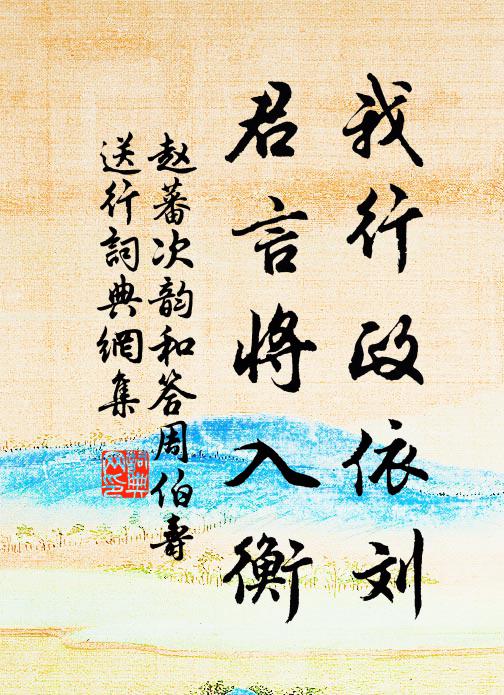 我行政依刘
君言将入衡
赵蕃次韵和答周伯寿
送行词典网集